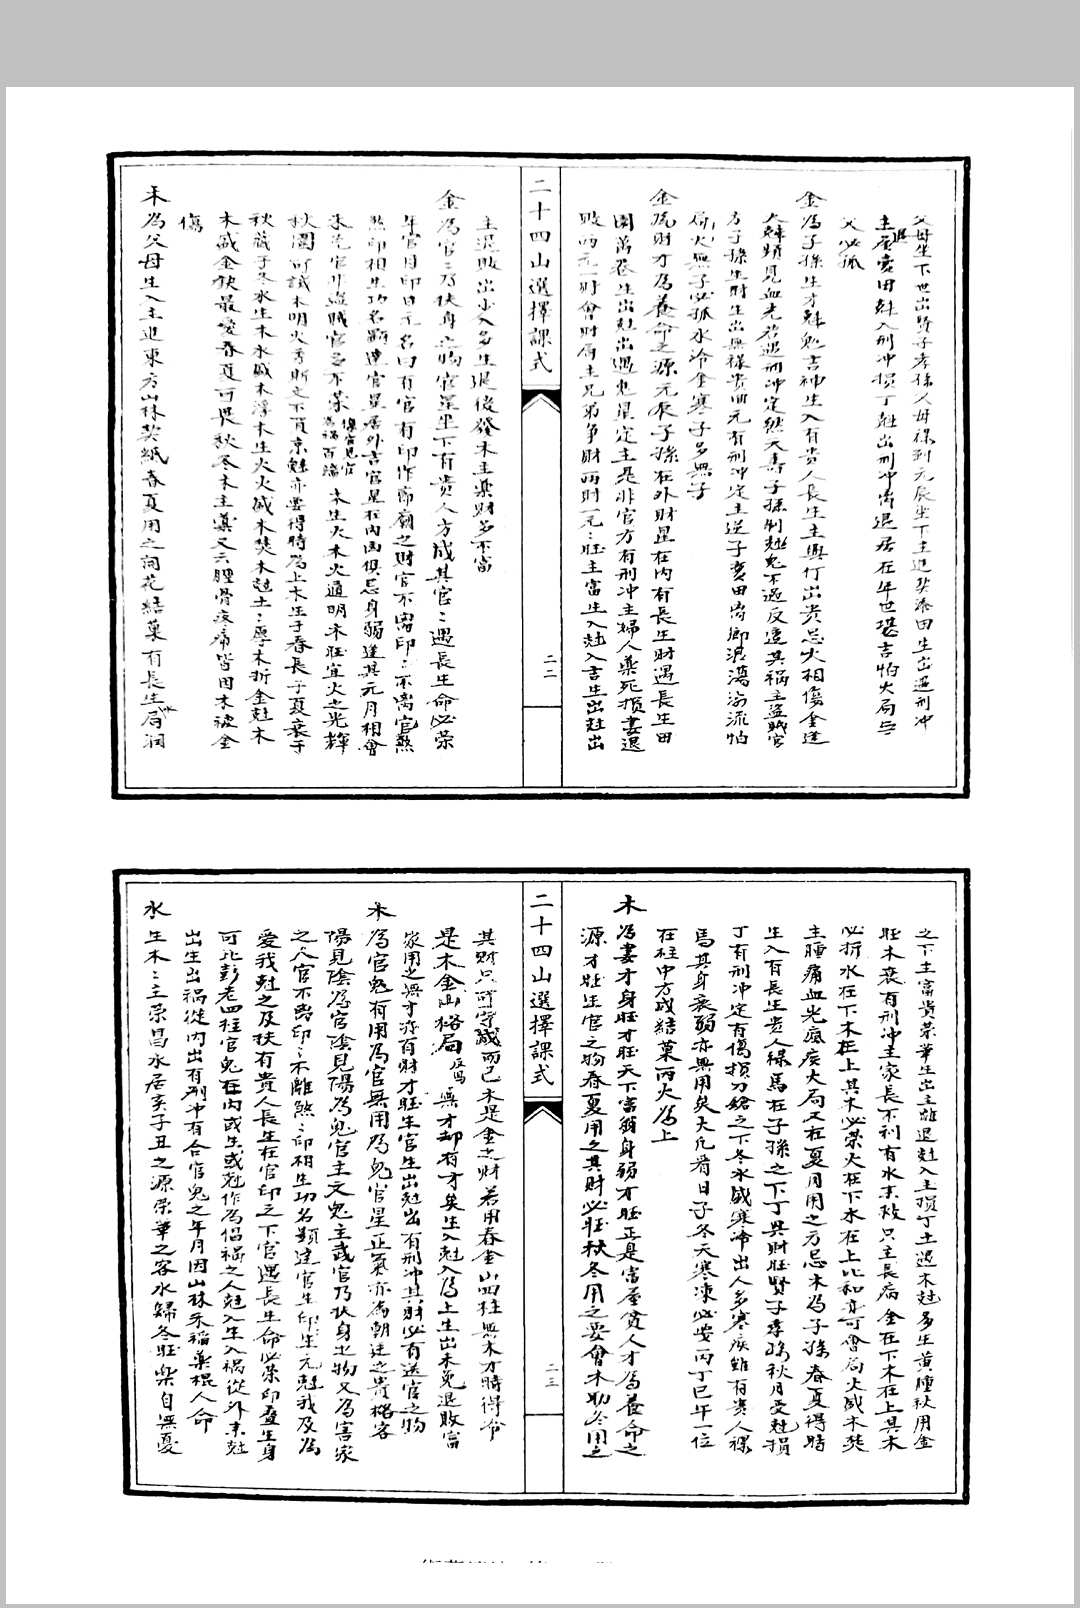 父母坐下世出賢子孝孫人母祿到元辰坐下主進契添田生出遇刑冲
主退賣田尅入刑冲損丁尅出刑冲崗退居在年世堪吉怕火局
父必孤
金為子孫生才尅鬼吉神生入有貴人長生主興行出貴忌火相傷金逢
大尅頭見血光若遇刑冲定然夭壽子孫制尅鬼不過反遭其禍主盜賊官
方子孫生財生出無祿貴而元有刑冲定主逆子賣田崗鄉浪蕩游流怕
火無子必孤水冷金寒子多無子
金為財才為養命之源元辰子孫在外財星在內有長生財遇長生田
園萬卷生出尅出遇鬼星定主是非官方有刑冲主婦人藥死損妻退
敗兩元一財會財局主兄弟爭財兩財一元元旺主富生入尅入吉生出尅出
二十四山選擇課式
二二
主退敗出少入多生退後發木主藥財多不富
金為官官乃扶身之物官星坐下有貴人方成其官官遇長生命必榮
年官月印日元名曰有官有印作廊廟之財官不离印印不离官煞
煞印相生功名顯達官星居外吉官星在內凶俱忌身弱逢其元月相會
未是官非盜賊官多不榮傷官見官為禍百端木生火木火通明木旺宜火之光輝
秋闈可試木明火秀則文不貢京尅亦要得時為上木生于春長于夏衰于
秋藏于冬水生木水盛木浮木生火火盛木焚木尅土土厚木折金尅木
木盛金缺最愛春夏可畏秋冬木主藥又云腰骨疼痛皆因木被金
傷
木為父母生入主進東方山林契紙春夏用之開花結菓有長生局水潤
之下主富貴榮華生出主離退尅入主損丁土遇木尅多生黃腫秋用金
旺木衰有刑冲主家長不利有水來救只主長病金在下木在上其木
必折水在下木在上其木必榮火在下水在上比和亦可會局火盛木焚
主腫痛血光瘋疾火局又在夏月用之方忌木為子孫春夏得時
生入有長生貴人祿馬在子孫之下丁與財旺賢子孝孫秋月受尅損
丁有刑冲定有傷損刀鎗之下冬水盛寒冷出人多寒疾雖有貴人祿
馬其身衰弱亦無用矣大凡看日子冬天寒凍必安丙丁巳午一位
在柱中方成結菓丙火為上
木為妻才身旺才旺天下富翁身弱才旺正是富屋貧人才為養命之
源才旺生官之物春夏用之其財必旺秋冬用之要會木助冬用之
二十四山選擇課式
二三
其財只可守成而已木是金之財若用春金山四柱無木才時得令
是木金山格局反為無才却有才矣生入尅入為上生出未免退敗富
家用之無才亦有財才旺生官生出尅出有刑冲其財必有送官之物
木為官鬼有用為官無用為鬼官星正氣亦為朝廷之貴格客
陽見陰為官陰見陽為鬼官主文鬼主武官乃扶身之物又為害家
之人官不离印印不離煞煞印相生功名顯達官生印生元尅我及為
愛我尅之及扶有貴人長生在官印之下官遇長生命必榮印疊生身
可比彭老四柱官鬼在內或生或尅作為侶禍之人尅入生入禍從外來尅
出生出禍從內出有刑冲有合官鬼之年月因山林禾稲藥棍人命
水生木木主榮昌水居亥子丑之源榮華之客水歸冬旺樂自無憂